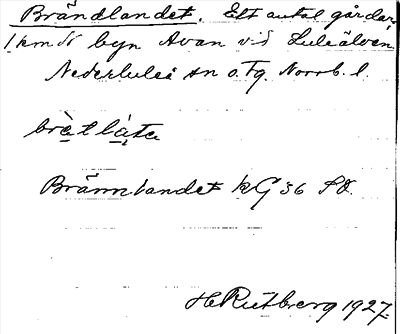 Brändlandet. Ett antal gårdar,
1 km N byn Avan vid Luleälven
Nederluleå sn o. Tg. Norrb. l.
brètlà̩ta
Brännlandet kG 36 SV.
H Rutberg 1927.